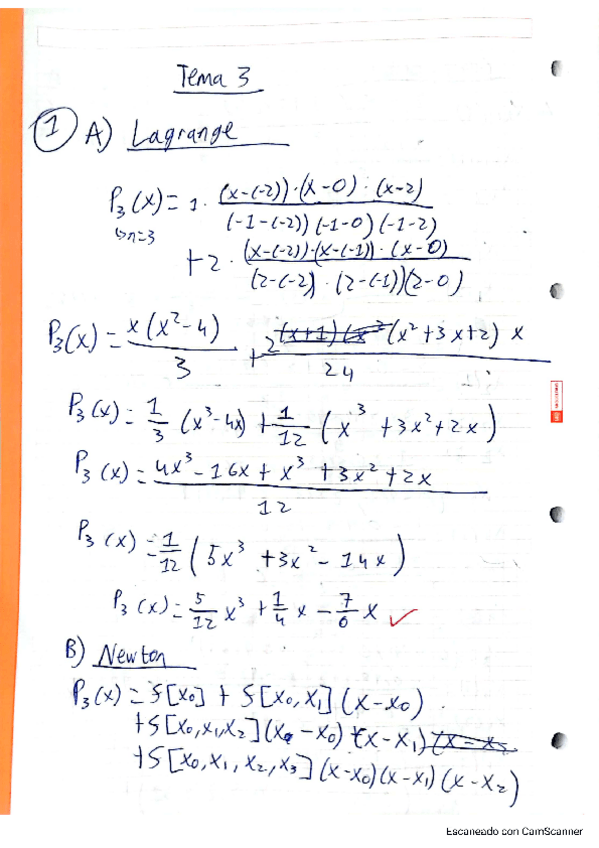 Tema 3
1 A) Lagrange
P₃(x) = 1 · (x-(-2))·(x-0)·(x-2) / (-1-(-2))(-1-0)(-1-2)
↳n=3
+ 2 · (x-(-2))·(x-(-1))·(x-0) / (2-(-2))·(2-(-1))(2-0)
P₃(x) = x(x²-4) / 3 + 2 (x²+3x+2) x / 24
P₃(x) = 1/3 (x³-4x) + 1/12 (x³ +3x²+2x)
P₃(x) = 4x³ - 16x + x³ + 3x² + 2x / 12
P₃(x) = 1/12 (5x³ +3x² - 14x)
P₃(x) = 5/12 x³ + 1/4 x - 7/6 x ✓
B) Newton
P₃(x) = f[x₀] + f[x₀,x₁](x-x₀)
+f[x₀,x₁,x₂](x-x₀)·(x-x₁)
+f[x₀,x₁,x₂,x₃](x-x₀)(x-x₁)(x-x₂)
Escaneado con CamScanner